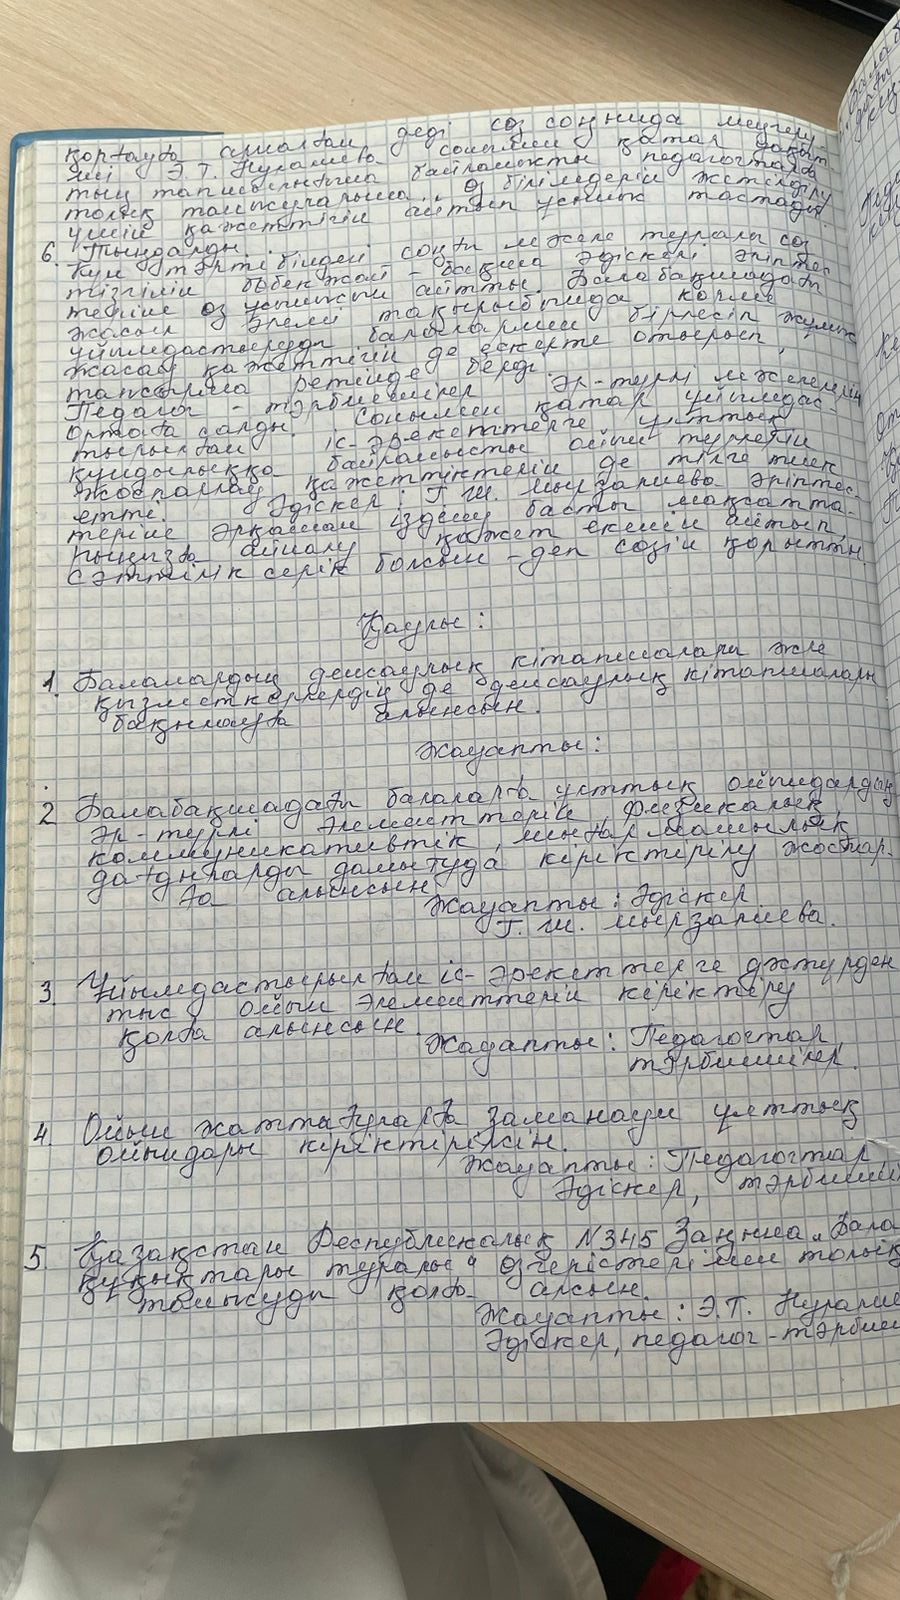 қорғауға алынған деді сөз соңында меңгеру-
шісі Э.Т. Нуралиева сонымен қатар уақыт-
тың тапшылығына байланысты педагогтарға
толық танысуларына, өз білімдерін жетілдіру
үшін қажеттігін айтып ұсыныс тастады
6. Тыңдалды
Күн тәртібіндегі соңғы мәселе туралы сөз
тізгінін бөбекжай - бақша әдіскері әріптес
теріне өз ұсынысын айтты. Балабақшадағы
жасыл әлемі тақырыбында көрме
ұйымдастыруды балалармен бірлесіп жұмыс
жасау қажеттігін де ескерте отырып,
тапсырма ретінде берді.
Педагог - тәрбиешілер әр-түрлі мәселелерін
ортаға салды. Сонымен қатар ұйымдас-
тырылған іс-әрекеттерге ұлттық
құндылыққа байланысты ойын түрлерін
жоспарлау қажеттіктерін де тілге тиек
етті. Әдіскер: Г.Ш. Мырзалиева әріптес-
теріне әрқашан іздену басты мақсатта-
рыңызға айналу қажет екенін айтып
сәттілік серік болсын - деп сөзін қорытты.
Қаулы:
1. Балалардың денсаулық кітапшалары және
қызметкерлердің де денсаулық кітапшалары
бақылауға алынсын.
Жауапты:
2 Балабақшадағы балаларға ұлттық ойындардың
әр-түрлі элементтерін, физикалық,
коммуникативтік, шығармашылық
дағдыларды дамытуда кіріктерілу жоспар-
ға алынсын
Жауапты: Әдіскер
Г.Ш. Мырзалиева.
3. Ұйымдастырылған іс-әрекеттерге дәстүрден
тыс ойын элементтерін кіріктеру
қолға алынсын.
Жауапты: Педагогтар,
тәрбиешілер.
4. Ойын жаттығуларға заманауи ұлттық
ойындары кіріктерілсін.
Жауапты: Педагогтар,
Әдіскер, тәрбиеші
5. Қазақстан Республикалық N345 Заңына „Бала
құқықтары туралы" өзгерістерімен толық
танысуды қолға алсын.
Жауапты: Э.Т. Нурали
Әдіскер, педагог-тәрбие